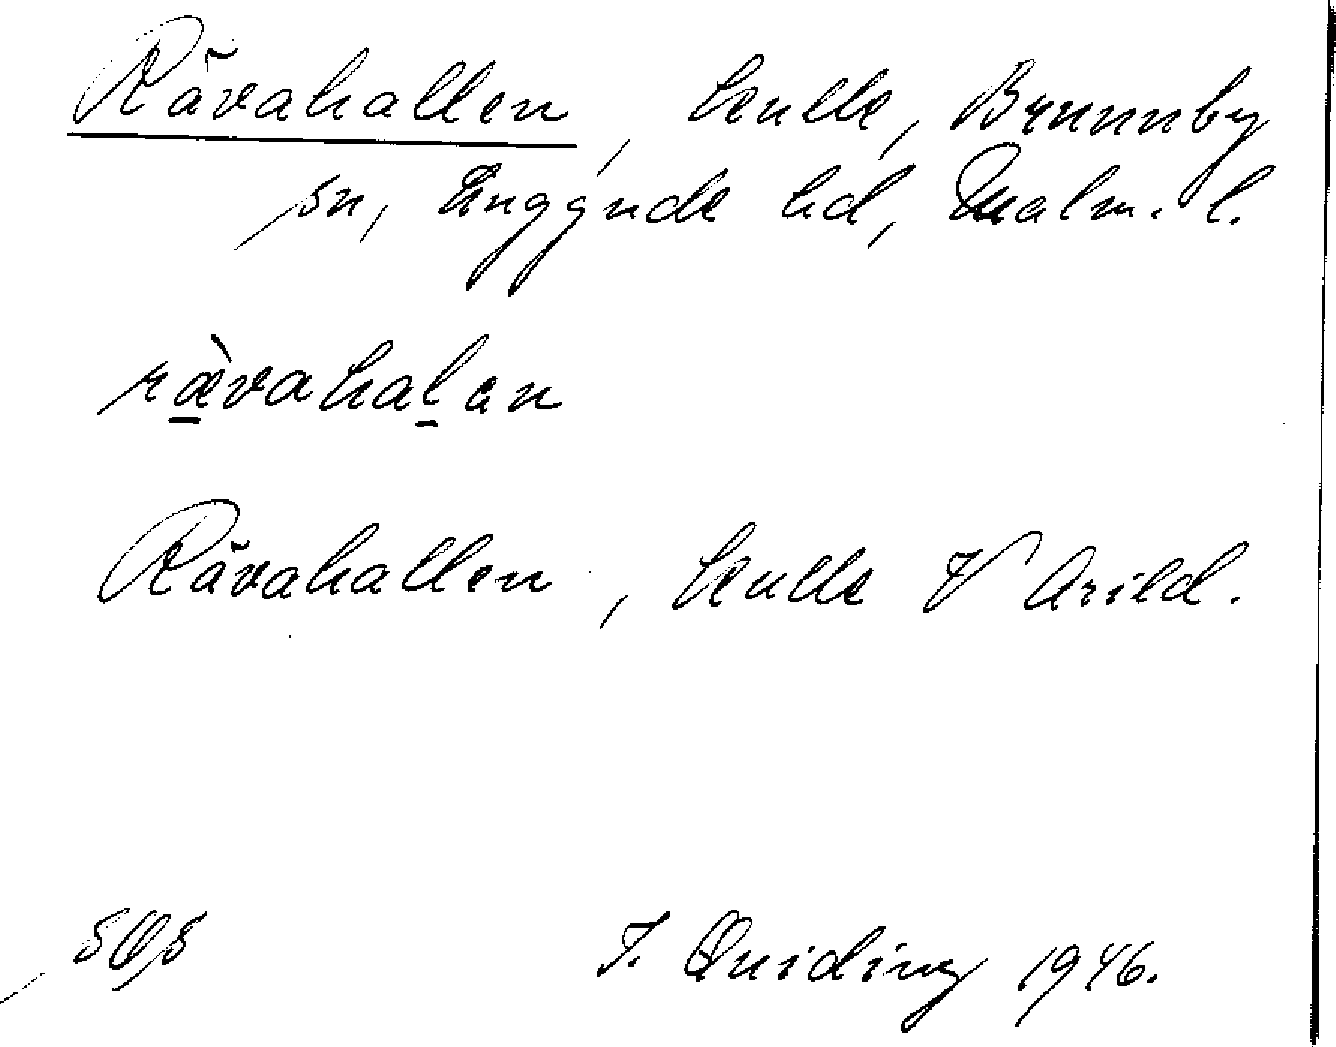 Rävahallen, kulle, Brunnby
sn, Luggude hd, Malm. l.
ræ̀vahalan
Rävahallen, kulle V Arild.
I. Quiding 1946.